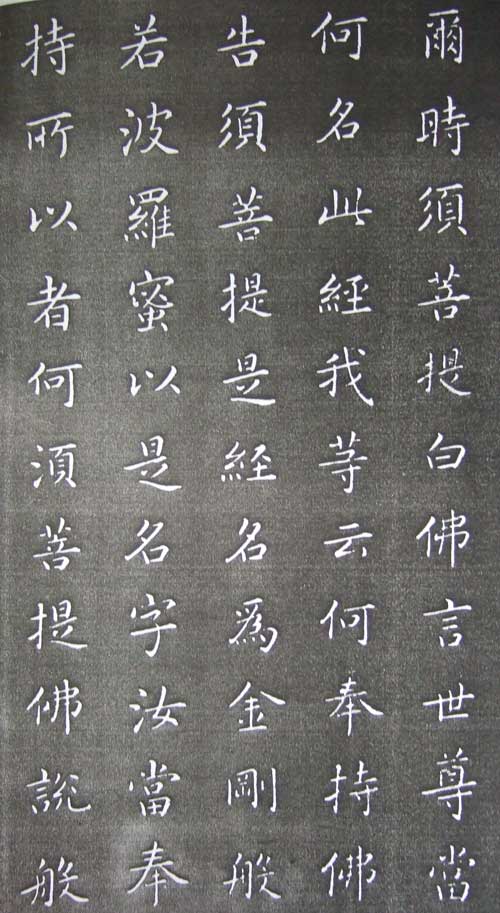 爾時須菩提白佛言世尊當
何名此經我等云何奉持佛
告須菩提是經名為金剛般
若波羅蜜以是名字汝當奉
持所以者何須菩提佛說般